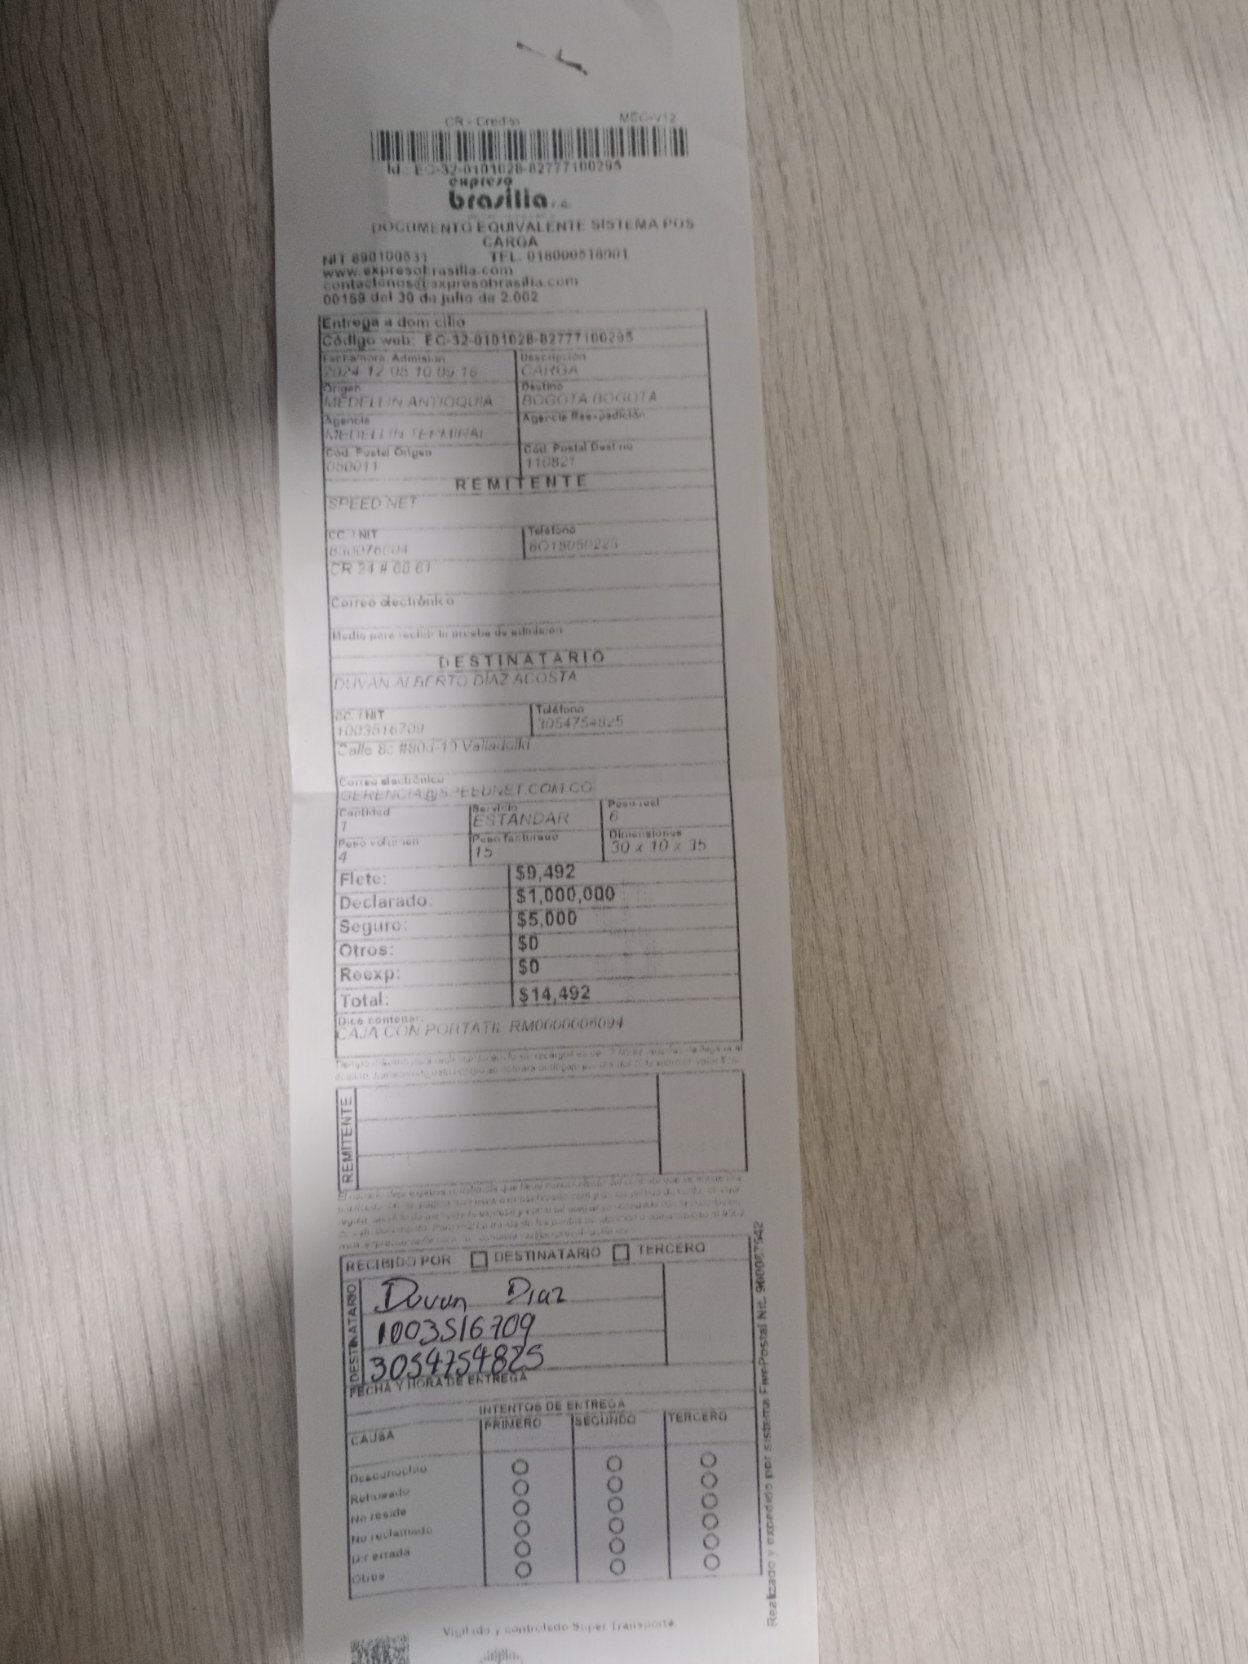 CR - Credito MEC-V12
Id.: EC-32-0101028-82777100295
expreso
brasilia s.a.
DOCUMENTO EQUIVALENTE SISTEMA POS
CARGA
NIT 890100531 TEL. 018000518001
www.expresobrasilia.com
contactenos@expresobrasilia.com
00159 del 30 de julio de 2.002
Entrega a domicilio
Código web: EC-32-0101028-82777100295
Fecha/hora Admisión Descripción
CARGA
Origen Destino
MEDELLIN ANTIOQUIA BOGOTA BOGOTA
Agencia Agencia Reexpedición
MEDELLIN TERMINAL
Cód. Postal Origen Cód. Postal Destino
050011 110821
REMITENTE
SPEED NET
CC. / NIT Teléfono
CR 24 #
Correo electrónico
Medio para recibir la prueba de admisión
DESTINATARIO
DUVAN ALBERTO DIAZ ACOSTA
CC. / NIT Teléfono
1003516709 3054754825
Calle 8c #80d-10
Correo electrónico
GERENCIA@SPEEDNET.COM.CO
Cantidad Servicio Peso real
1 ESTANDAR 6
Peso volumen Peso facturado Dimensiones
4 15 30 x 10 x 35
Flete: $9,492
Declarado: $1,000,000
Seguro: $5,000
Otros: $0
Reexp: $0
Total: $14,492
Dice contener:
CAJA CON PORTATIL RM0000006094
REMITENTE
RECIBIDO POR DESTINATARIO TERCERO
DESTINATARIO
Duvan Diaz
1003516709
3054754825
FECHA Y HORA DE ENTREGA
INTENTOS DE ENTREGA
CAUSA PRIMERO SEGUNDO TERCERO
Desconocido
Rehusado
No reside
No reclamado
Dir errada
Otros
Realizado y expedido por sistema Fwr-Postal Nit. 900087542
Vigilado y controlado Super Transporte